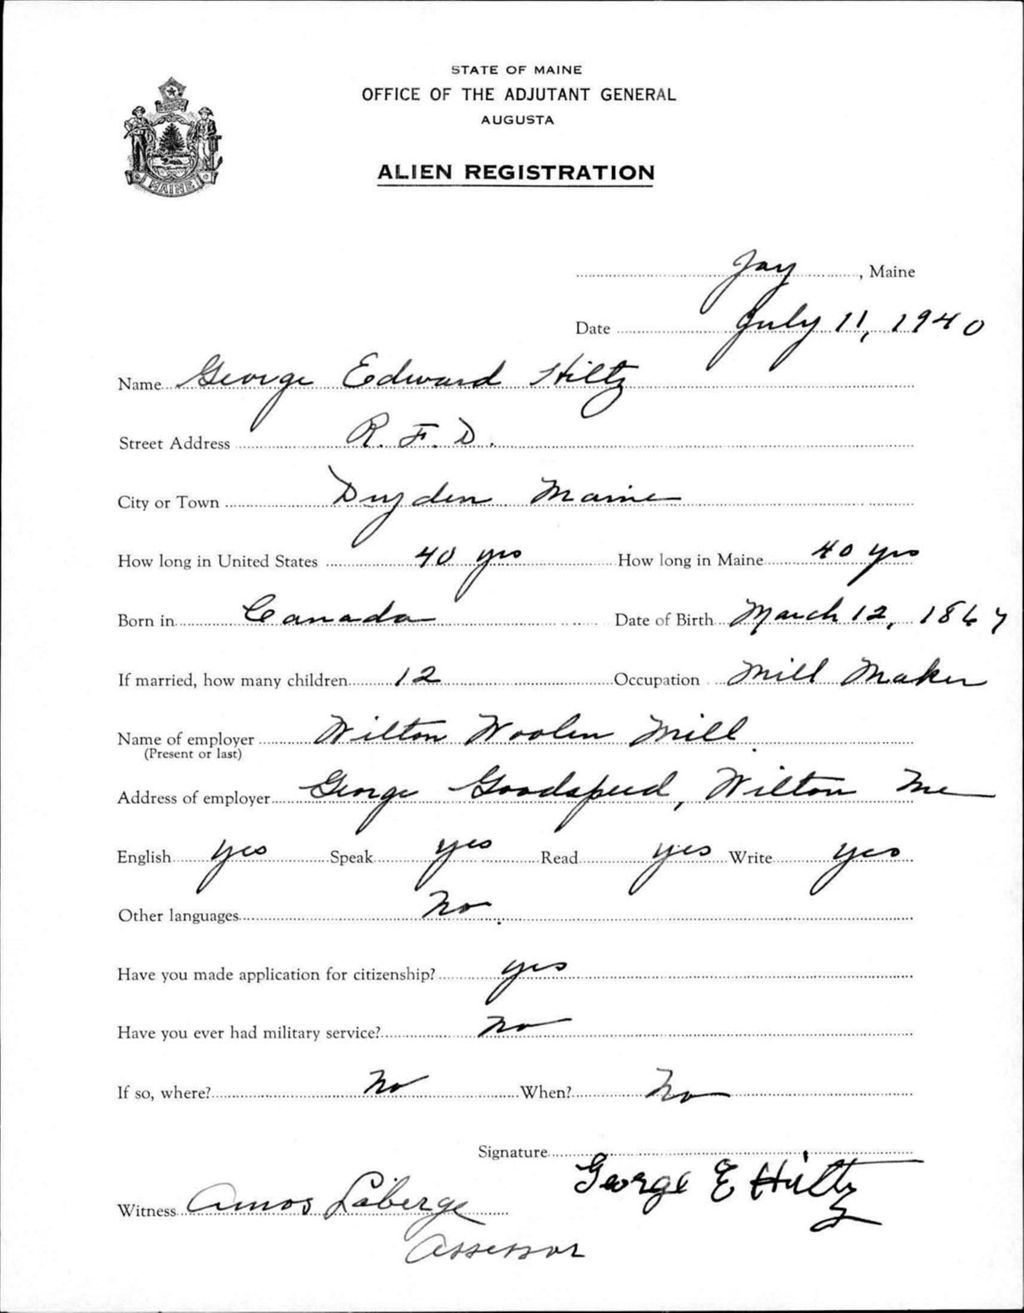 STATE OF MAINE
OFFICE OF THE ADJUTANT GENERAL
AUGUSTA
ALIEN REGISTRATION
MAINE
Jay, Maine
Date July 11, 1940
Name George Edward Hiltz
Street Address R. F. D.
City or Town Dryden Maine
How long in United States 40 yrs How long in Maine 40 yrs
Born in Canada Date of Birth March 12, 1867
If married, how many children 12 Occupation Mill Maker
Name of employer Wilton Woolen Mill
(Present or last)
Address of employer George Goodspeed, Wilton Me
English yes Speak yes Read yes Write yes
Other languages No.
Have you made application for citizenship? yes
Have you ever had military service? No
If so, where? No When? No
Signature George E Hiltz
Witness Amos Laberge
Assessor